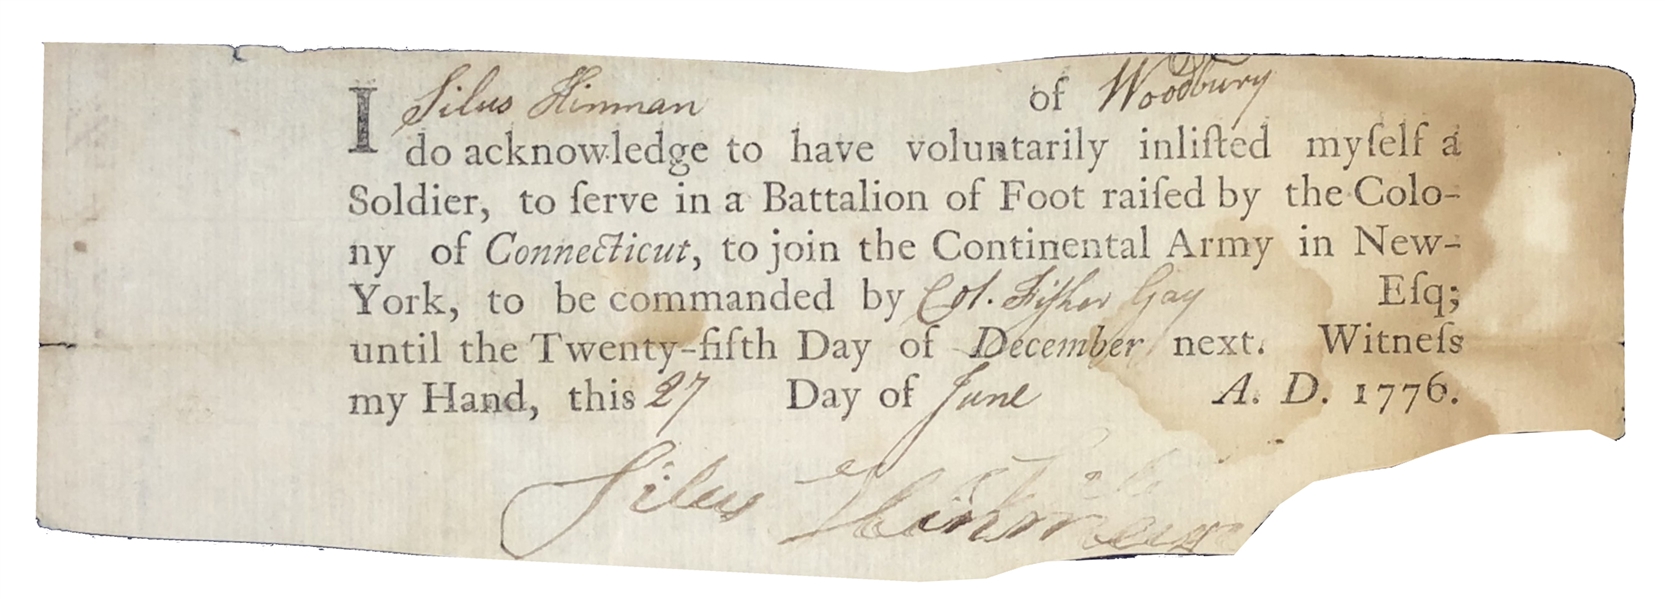 I Silus Hinman of Woodbury
do acknowledge to have voluntarily inliſted myſelf a
Soldier, to ſerve in a Battalion of Foot raiſed by the Colo-
ny of Connecticut, to join the Continental Army in New-
York, to be commanded by Col. Fisher Gay Eſq;
until the Twenty-fifth Day of December next. Witneſs
my Hand, this 27 Day of June A. D. 1776.
Silus Hinman